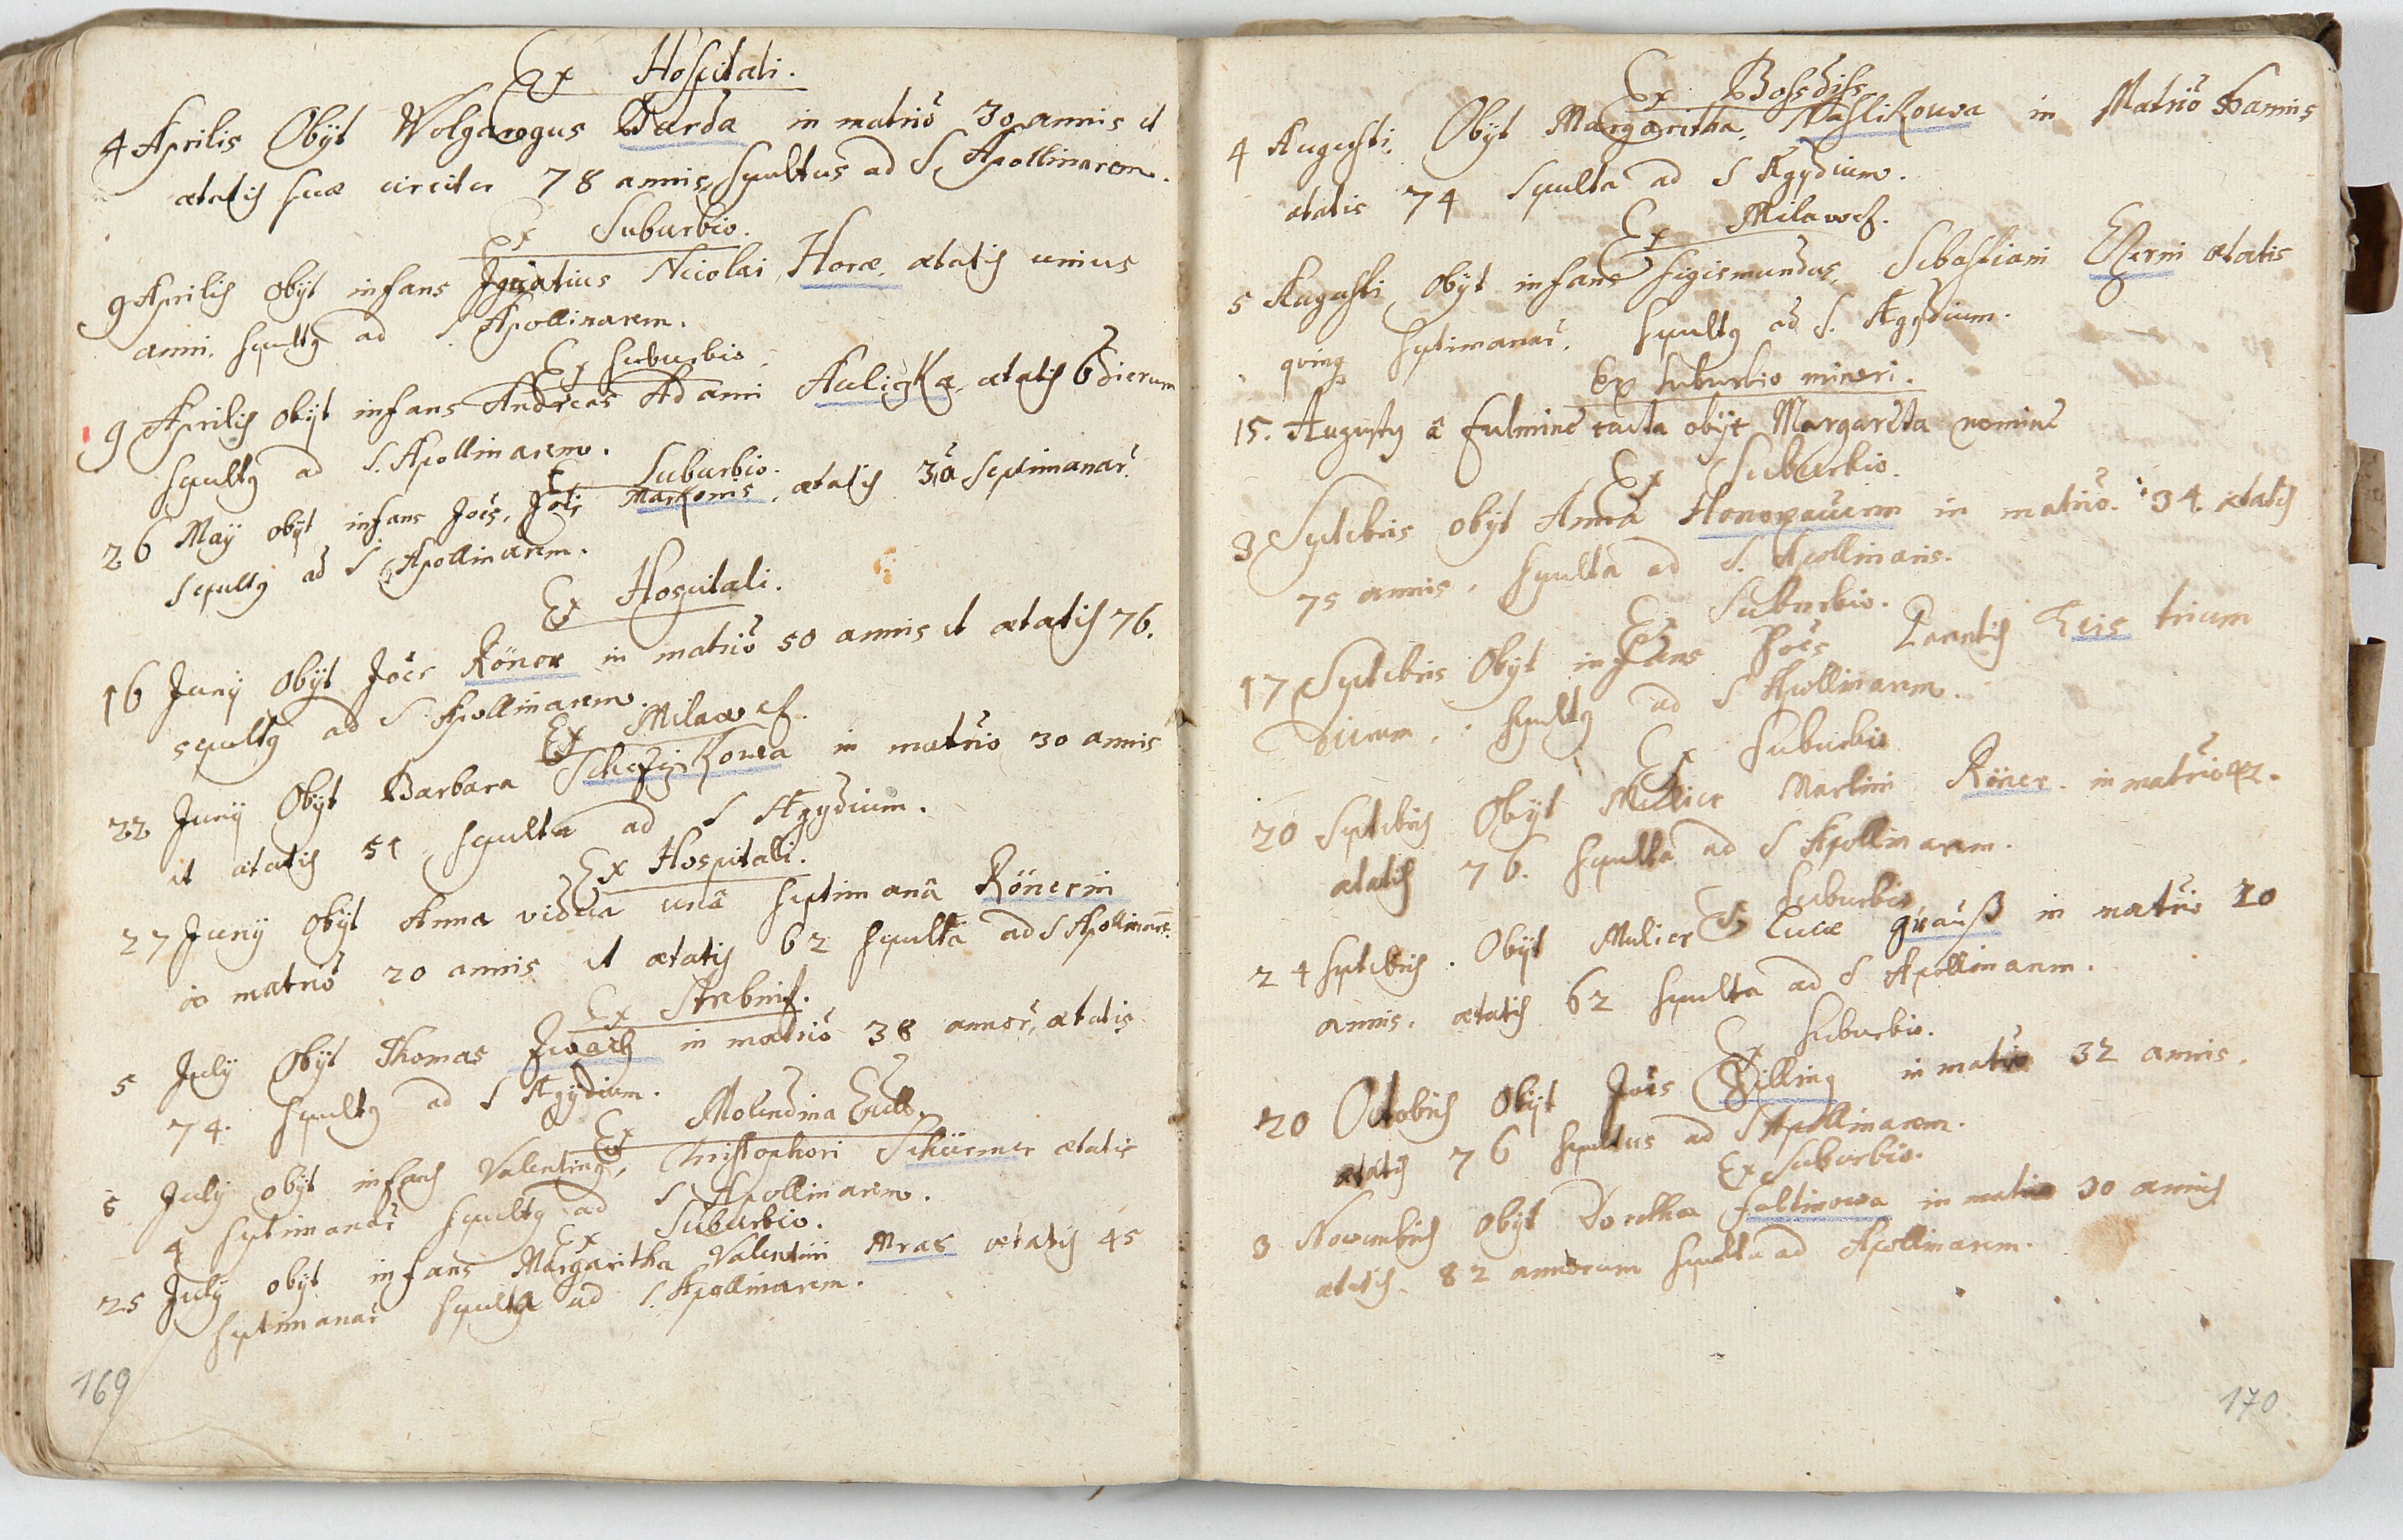 Ex Hospitali.
4 Aprilis Obijt Wolgangus Barda in matriō 30 annis et
ætatis suæ circiter 78 annis, sepultus ad S. Apollinarem.
Ex Suburbio.
9 Aprilis obijt infans Ignatius Nicolai Horæ, ætatis unius
anni. sepultg ad S Apollinarem.
Ex Suburbio.
9 Aprilis obijt infans Andreas Adami ætatis 6 dierum
sepultg ad S. Apollinarem.
Ex Suburbio.
26 Maÿ obijt infans Joēs, Joīs Markonis, ætatis 3a Septimanar̄.
Sepultg ad S. Apollinarem.
Ex Hospitali.
16 Junÿ Obijt Joēs Röner in matriō 50 annis et ætatis 76.
sepultg ad S Apollinarem.
Ex Milawcz.
22 Junÿ Obijt Barbara in matriō 30 annis
et ætatis 51 sepulta ad S Ægydium.
Ex Hospitali.
27 Junÿ obijt Anna vidua unâ septimanâ Rönerin
in matriō 20 annis et ætatis 62 sepulta ad S Apollinarē.
Ex
5 July Obijt Thomas in matriō 38 annor̄, ætatis
74. sepultg ad S Ægydium.
Ex Molendina
5 July obijt infans Valenting, Christophori Schürmer ætatis
4 septimanar̄ sepultg ad S Apollinarem.
Ex Suburbio.
25 July obijt infans Margaritha Valentini Mras ætatis 45
septimanar̄ sepulta ad S. Apollinarem.
169
Ex
4 Augusti. Obijt Margaritha, in Matriō annis
ætatis 74 Sepulta ad S Ægydium.
Ex Milawcz.
5 Augusti Obijt infans Sigismundus, Sebastiani ætatis
qving septimanar̄, sepultg ad S. Ægydium.
Ex Suburbio minori.
15. Augusty â fulmine tacta obijt Margareta nomine
Ex Suburbio.
3 Septēbris obijt Anna in matriō. 34. ætatis
75 annis, sepulta ad S. Apollinaris.
Ex Suburbio.
17 Septēbris Obijt infans Joēs trium
dierum, sepultg ad S Apollinarem.
Ex Suburbio
20 Septēbris Obijt Mulier Martini Röner. in matriō
ætatis 76. sepulta ad S Apollinarem.
Ex Suburbio,
24 Septēbris. Obijt Mulier Lucæ in matriō 20
annis. ætatis 62 sepulta ad S Apollinarem.
Ex Suburbio.
20 Octobris Obijt Joēs Billing in matriō 32 annis.
ætatis 76 sepultus ad S Apollinarem.
Ex Suburbio.
3 Novembris Obijt Dorothea Faltinowa in matriō 30 annis
ætatis. 82 annorum sepulta ad Apollinarem.
170